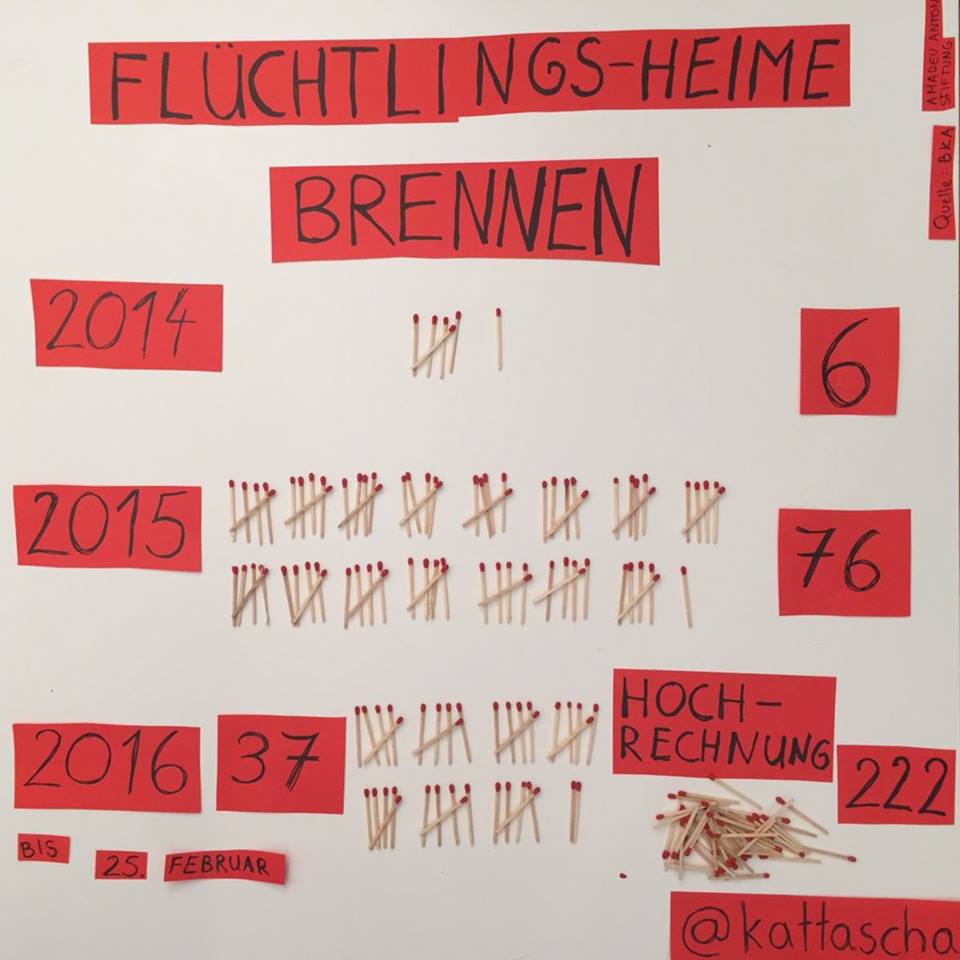 FLÜCHTLINGS-HEIME
BRENNEN
2014
6
2015
76
2016
37
HOCH-
RECHNUNG
222
BIS
25.
FEBRUAR
@kattascha
AMADEU ANTON
STIFTUNG
Quelle: BKA